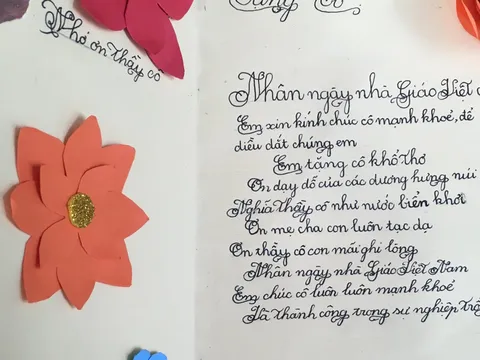 Nhớ ơn thầy cô
Tặng Cô
Nhân ngày nhà Giáo Việt
Em xin kính chúc cô mạnh khoẻ, để
diều dắt chúng em
Em tặng cô khổ thơ
Ơn dạy dỗ của các dương hưng núi
Nghĩa thầy cô như nước biển khơi
Ơn mẹ cha con luôn tạc dạ
Ơn thầy cô con mãi ghi lòng
Nhân ngày nhà Giáo Việt Nam
Em chúc cô luôn luôn mạnh khoẻ
Và thành công trong sự nghiệp